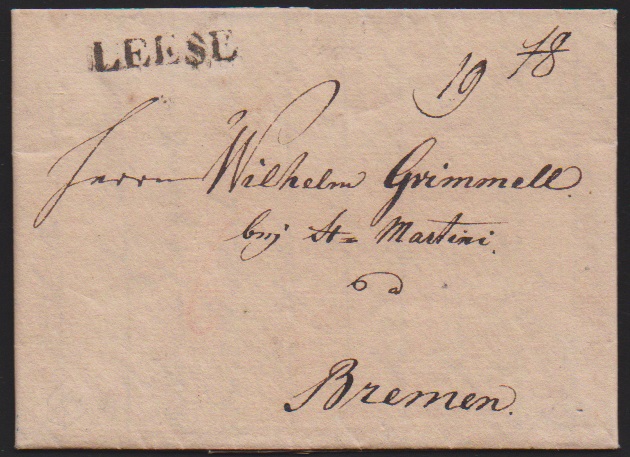 LEESE
19 48
Herrn Wilhelm Grimmell
bey St= Martini.
Bremen.